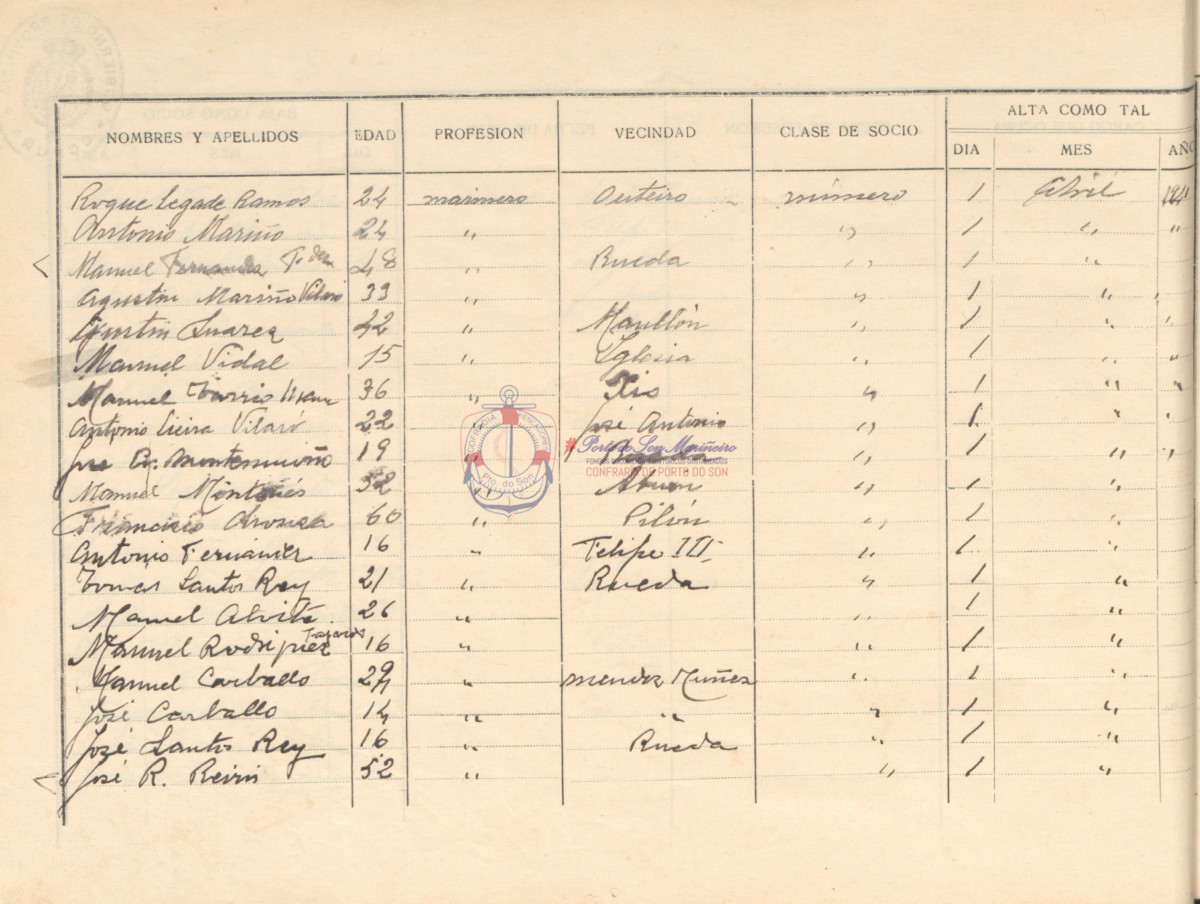 ALTA COMO TAL
NOMBRES Y APELLIDOS EDAD PROFESION VECINDAD CLASE DE SOCIO DIA MES AÑO
Roque Legade Ramos 24 marinero Outeiro número 1 Abril
Antonio Mariño 24 " " 1 " "
Manuel 48 " Rueda " 1 " "
Agustin Mariño Vilaró 39 " " 1 " "
Suarez 42 " " 1 " "
Manuel Vidal 15 " Iglesia " 1 " "
Manuel 36 " Xio " 1 " "
Antonio Lieira Vilaró 22 " José Antonio " 1 " "
19 " " 1 " "
Manuel 52 " " 1 "
Francisco 60 " Pilón " 1 "
Antonio Fernandez 16 " Felipe III " 1 "
Tomas Santos Rey 21 " Rueda " 1 "
Manuel Alvite. 26 " " 1 "
Manuel Rodriguez 16 " " 1 "
Manuel Carballo 29 " Mendez Nuñez " 1 "
José Carballo 14 " " " 1 "
José Santos Rey 16 " Rueda " 1 "
José R. 52 " " 1 "
COFRADIA PESCADORES
Pto. do Son
#Porto do Son Mariñeiro
CONFRARÍA DE PORTO DO SON